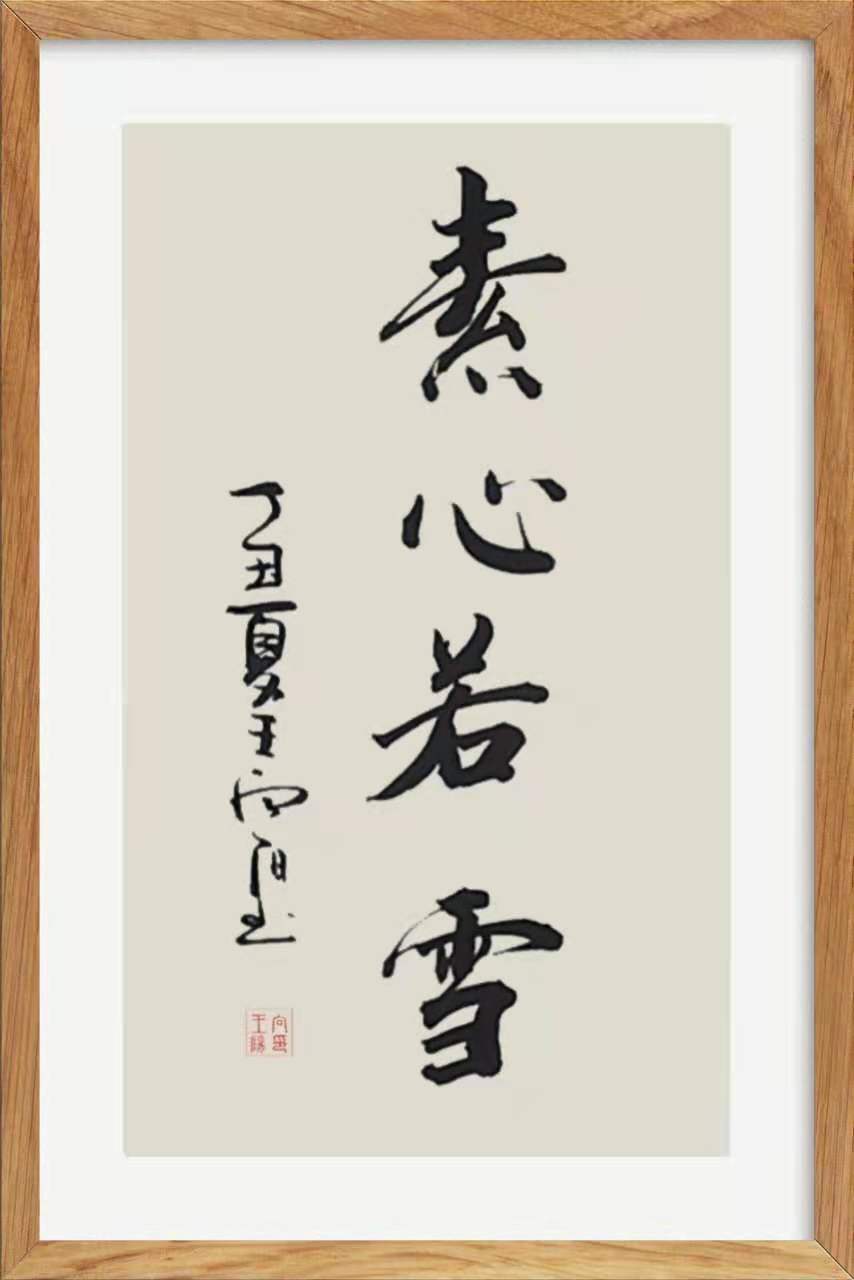 素心若雪
丁丑夏王向阳
向印
王陽